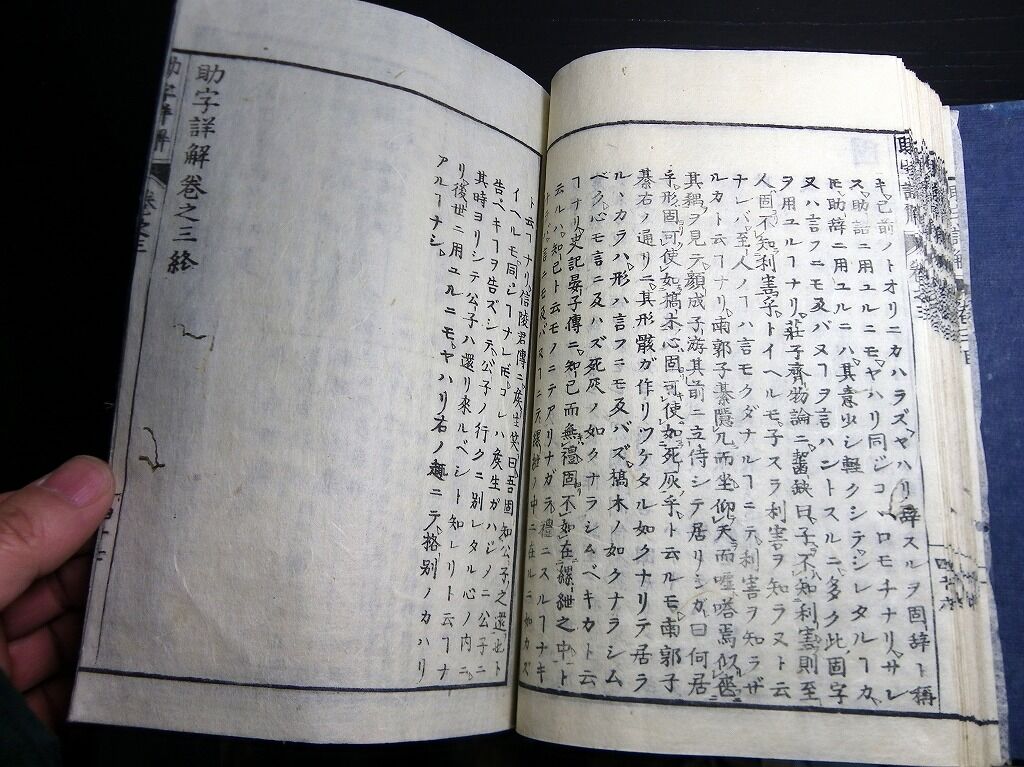 キ、已前ノトオリニカハラズ、ヤハリ辞スルヲ固辞ト稱
ス、助語ニ用ユルニモ、ヤハリ同ジコヽロモチナリ、サレ
𪜈助辞ニ用ユルニハ、其意少シ軽クシテ、シレタルヿカ、
又ハ言フニモ及バヌヿヲ言ハントスルニ、多ク此固字
ヲ用ユルヿナリ、莊子齊物論ニ、齧缺曰、子不知利害、則至
人固不知利害乎、トイヘルモ、子スラ利害ヲ知ラヌト云
ナレバ、至人ノヿハ言モクダナルヿニテ、利害ヲ知ラザ
ルカト云ヿナリ、南郭子綦隱几而坐、仰天而嘘、嗒焉似喪
其耦ヲ見テ、顔成子游其前ニ立侍シテ居リシガ、曰何居
乎、形固可使如槁木、心固可使如死灰乎、ト云ルモ、南郭子
綦右ノ通リニ、其形骸ガ作リツケタル如クナリテ居ラ
ル、カラハ、形ハ言フニモ及バズ、槁木ノ如クナラシム
ベク、心モ言ニ及ハズ、死灰ノ如クナラシムベキカト云
ヿナリ、史記晏子傳ニ、知已而無禮、固不如在縲紲之中、ト
云ルハ、知已ト云モノニテアリナガラ、禮ニスルヿナキ
言ニモ及バヌヿニテ、縲紲ノ中ニ在ルニ如カズ
ト云ヿナリ、信陵君傳ニ、侯生笑曰、吾固知公子之還也、ト
イヘルモ、同シヿナレ𪜈、コレハ侯生ガハジメニ公子ニ
告ベキヿヲ告ズシテ、公子ノ行クニ別レタル心ノ内ニ、
其時ヨリシテ公子ハ還リ來ルベシト知レリト云ヿナ
リ、後世ニ用ユルニモ、ヤハリ右ノ趣ニテ、格別ノカハリ
アルヿナシ、
助字詳解卷之三終
助字詳解
卷之三